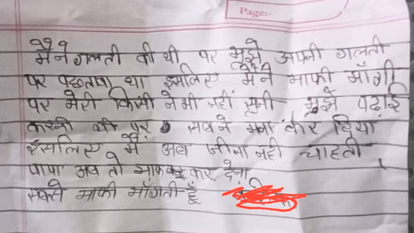 Page:-
मैने गलती की थी पर मुझे अपनी गलती
पर पछतावा था इसलिए मैंने माफी माँगी
पर मेरी किसी ने भी नहीं सुनी मुझे पढ़ाई
करनी थी पर सबने मना कर दिया
इसलिए मैं अब जीना नहीं चाहती
पापा अब तो माफ कर देना
सबसे माफी माँगती हूँ